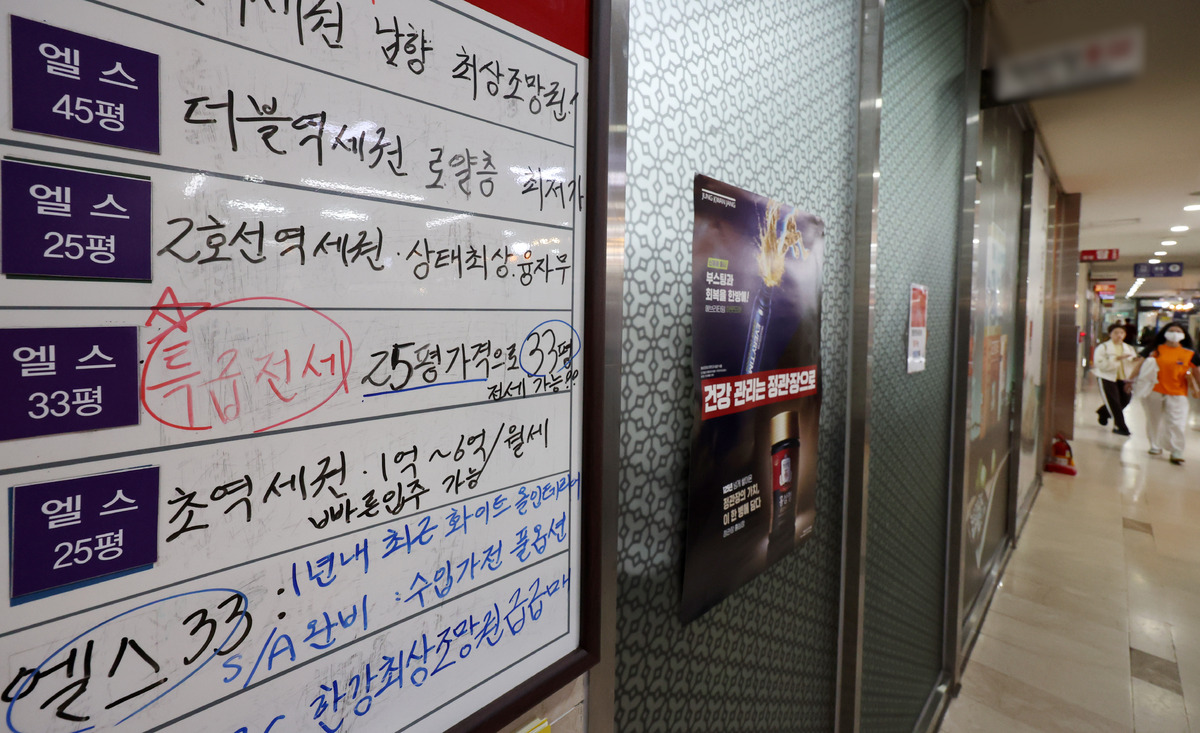 세권 남향 최상조망권.
엘스
45평
더블역세권 로얄층 최저가
엘스
25평
2호선역세권·상태최상.융자무
엘스
33평
특급전세
25평가격으로 33평
전세 가능??
엘스
25평
초역세권·1억~6억/월세
빠른입주 가능
엘스 33
:1년내 최근 화이트 올인테리어
S/A완비 :수입가전 풀옵션
한강최상조망권급급매
JUNG KWAN JANG
부스팅과
회복을 한방에!
건강 관리는 정관장으로
정관장의 가치,
이 한 병에 담다